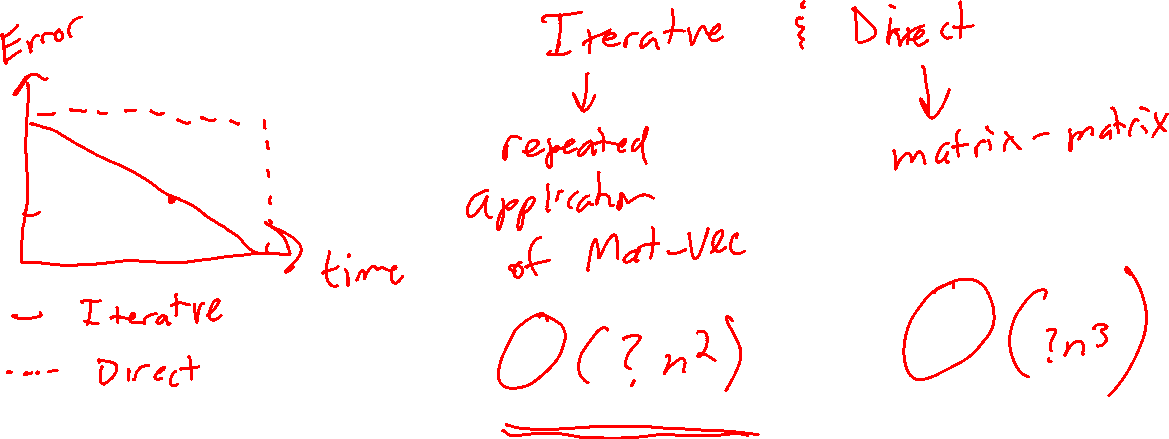 Error
time
Iteratve
Direct
Iteratve & Direct
repeated
application
of Mat-Vec
O(? n²)
matrix-matrix
O(?n³)